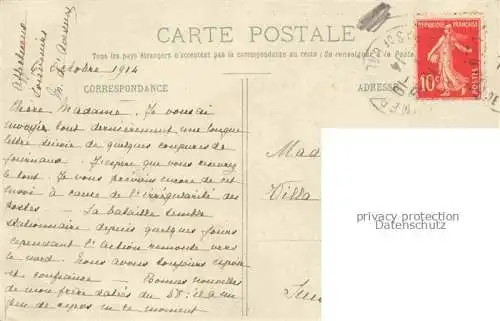 CARTE POSTALE
Tous les pays étrangers n'acceptent pas la correspondance au recto (Se renseigner à la Poste)
CORRESPONDANCE
ADRES
REPUBLIQUE FRANÇAISE
10c
Octobre 1914
Chère Madame. Je vous ai
envoyé tout dernièrement une longue
lettre suivie de quelques coupures de
journaux. J'espère que vous recevrez
le tout. Je vous préviens encore de cet
envoi à cause de l'irrégularité des
postes - La bataille semble
stationnaire depuis quelques jours
cependant l'action remonte vers
le nord. Nous avons toujours espoir
et confiance - Bonnes nouvelles
de mon frère datées du 28: il a un
peu de repos en ce moment
Affectueux
Souvenirs
Mad
Villa
privacy protection
Datenschutz